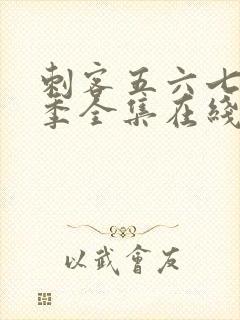 刺客五六七
季全集在綫
以武會友